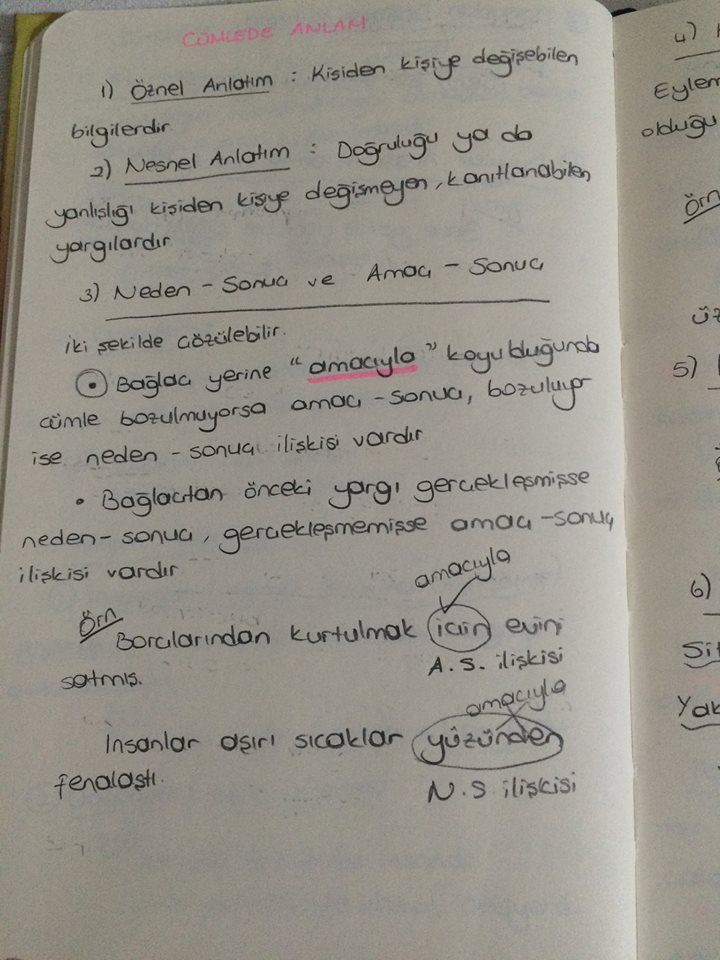 CÜMLEDE ANLAM
1) Öznel Anlatım : Kişiden kişiye değişebilen
bilgilerdir
2) Nesnel Anlatım : Doğruluğu ya da
yanlışlığı kişiden kişiye değişmeyen, kanıtlanabilen
yargılardır
3) Neden - Sonuç ve Amaç - Sonuç
iki şekilde çözülebilir.
Bağlaç yerine "amacıyla" koyulduğunda
cümle bozulmuyorsa amaç - sonuç, bozuluyor
ise neden - sonuç ilişkisi vardır
• Bağlaçtan önceki yargı gerçekleşmişse
neden - sonuç, gerçekleşmemişse amaç - sonuç
ilişkisi vardır
amacıyla
Örn
Borçlarından kurtulmak için evini
satmış.
A.S. ilişkisi
amacıyla
İnsanlar aşırı sıcaklar yüzünden
fenalaştı.
N.S ilişkisi
4)
Eylem
olduğu
Örn
üz
5)
6)
Sit
Yak